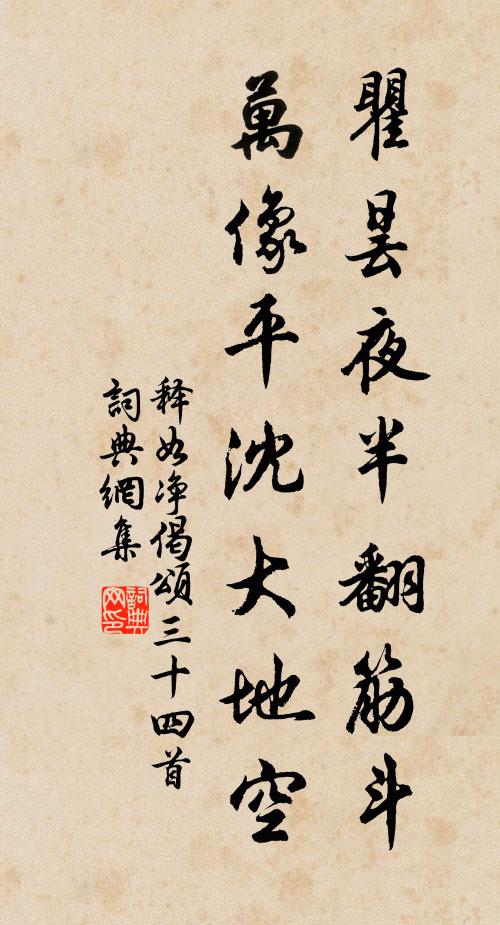 瞿曇夜半翻筋斗
萬像平沈大地空
釋如净偈頌三十四首
詞典網集
詞典网印